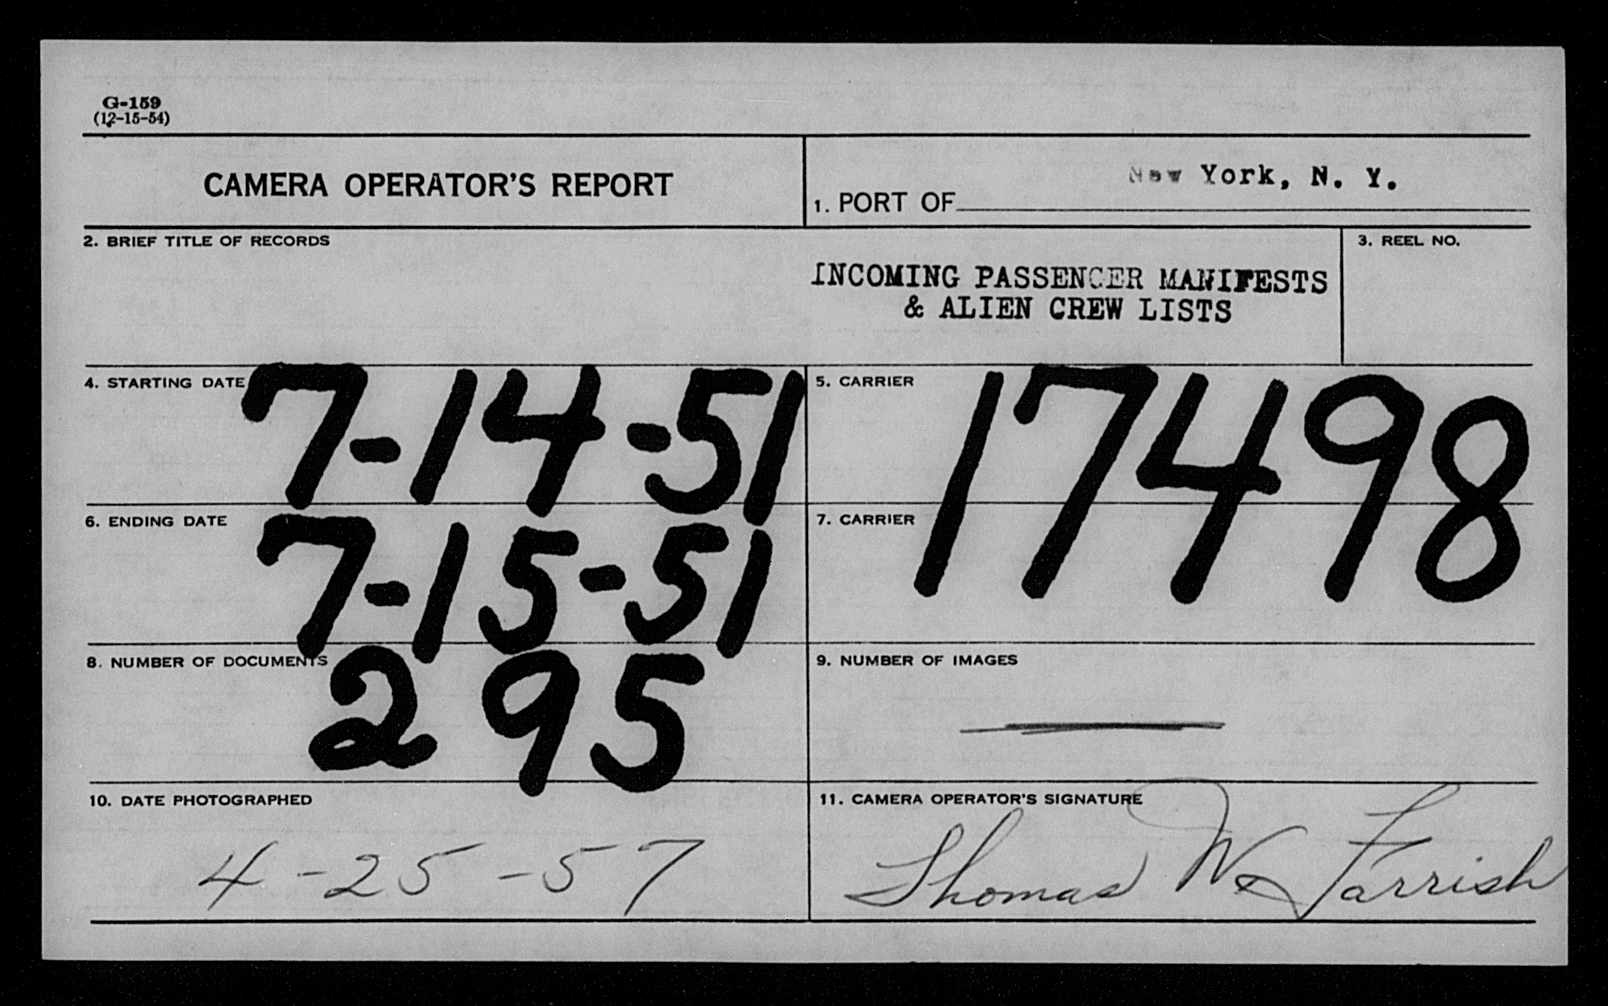 G-159
(12-15-54)
CAMERA OPERATOR'S REPORT
1. PORT OF New York, N. Y.
2. BRIEF TITLE OF RECORDS
INCOMING PASSENGER MANIFESTS
& ALIEN CREW LISTS
3. REEL NO.
4. STARTING DATE 7-14-51
5. CARRIER 17498
6. ENDING DATE 7-15-51
7. CARRIER
8. NUMBER OF DOCUMENTS 295
9. NUMBER OF IMAGES
10. DATE PHOTOGRAPHED
4-25-57
11. CAMERA OPERATOR'S SIGNATURE
Thomas W. Farrish